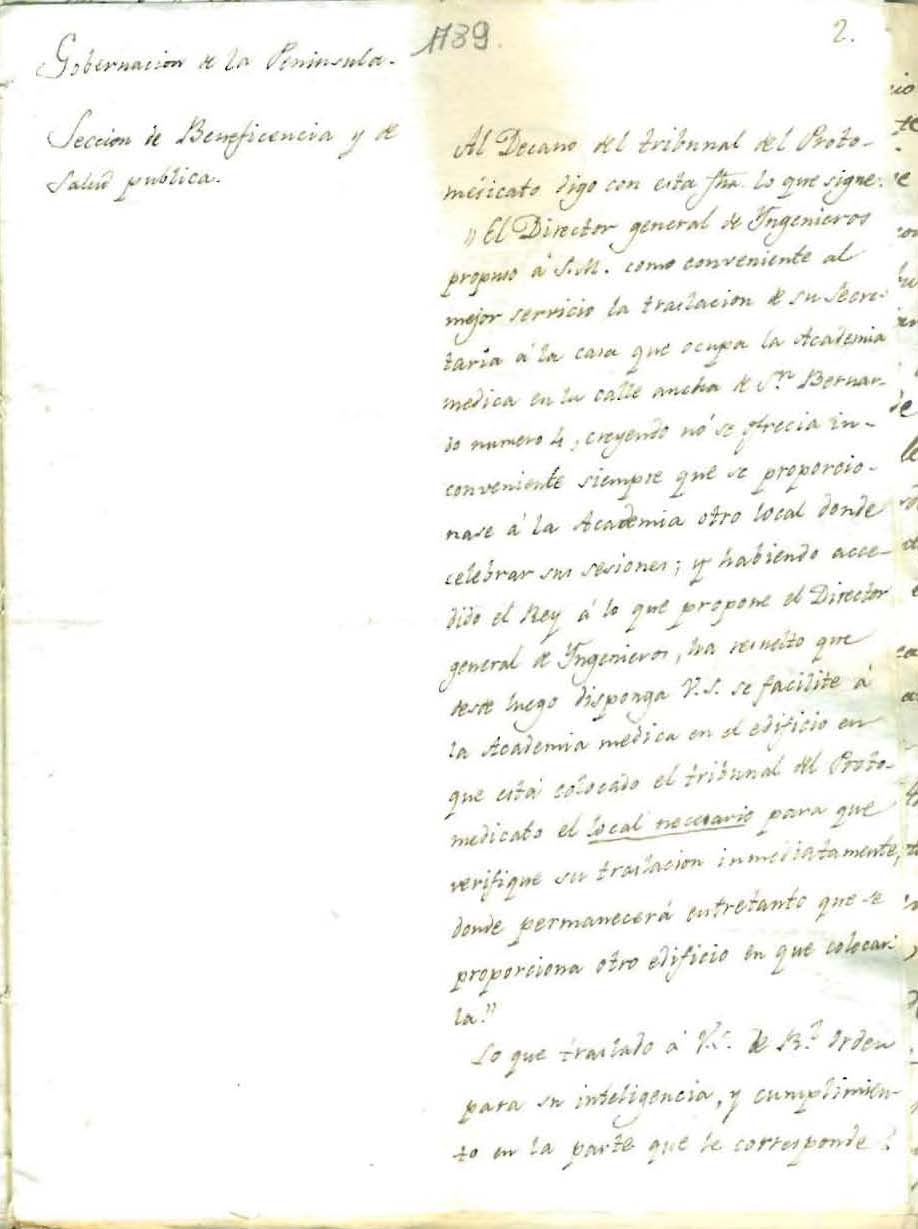 1739.
2.
Gobernacion de la Peninsula.
Seccion de Beneficencia y de
Salud publica.
Al Decano del tribunal del Proto-
medicato digo con esta fha. lo que sigue.
"El Director general de Yngenieros
propuso á S.M. como conveniente al
mejor servicio la traslacion de su Secre-
taria á la casa que ocupa la Academia
medica en la calle ancha de Sn. Bernar-
do numero 4, creyendo nó se ofrecia in-
conveniente siempre que se proporcio-
nase á la Academia otro local donde
celebrar sus sesiones; y habiendo acce-
dido el Rey á lo que propone el Director
general de Yngenieros, ha resuelto que
desde luego disponga V.S. se facilite á
la Academia medica en el edificio en
que está colocado el tribunal del Proto-
medicato el local necesario para que
verifique su traslacion inmediatamente,
donde permanecerá entretanto que se
proporciona otro edificio en que colocar-
la."
Lo que traslado á V.S. de Rl. orden
para su inteligencia, y cumplimien-
to en la parte que le corresponde.